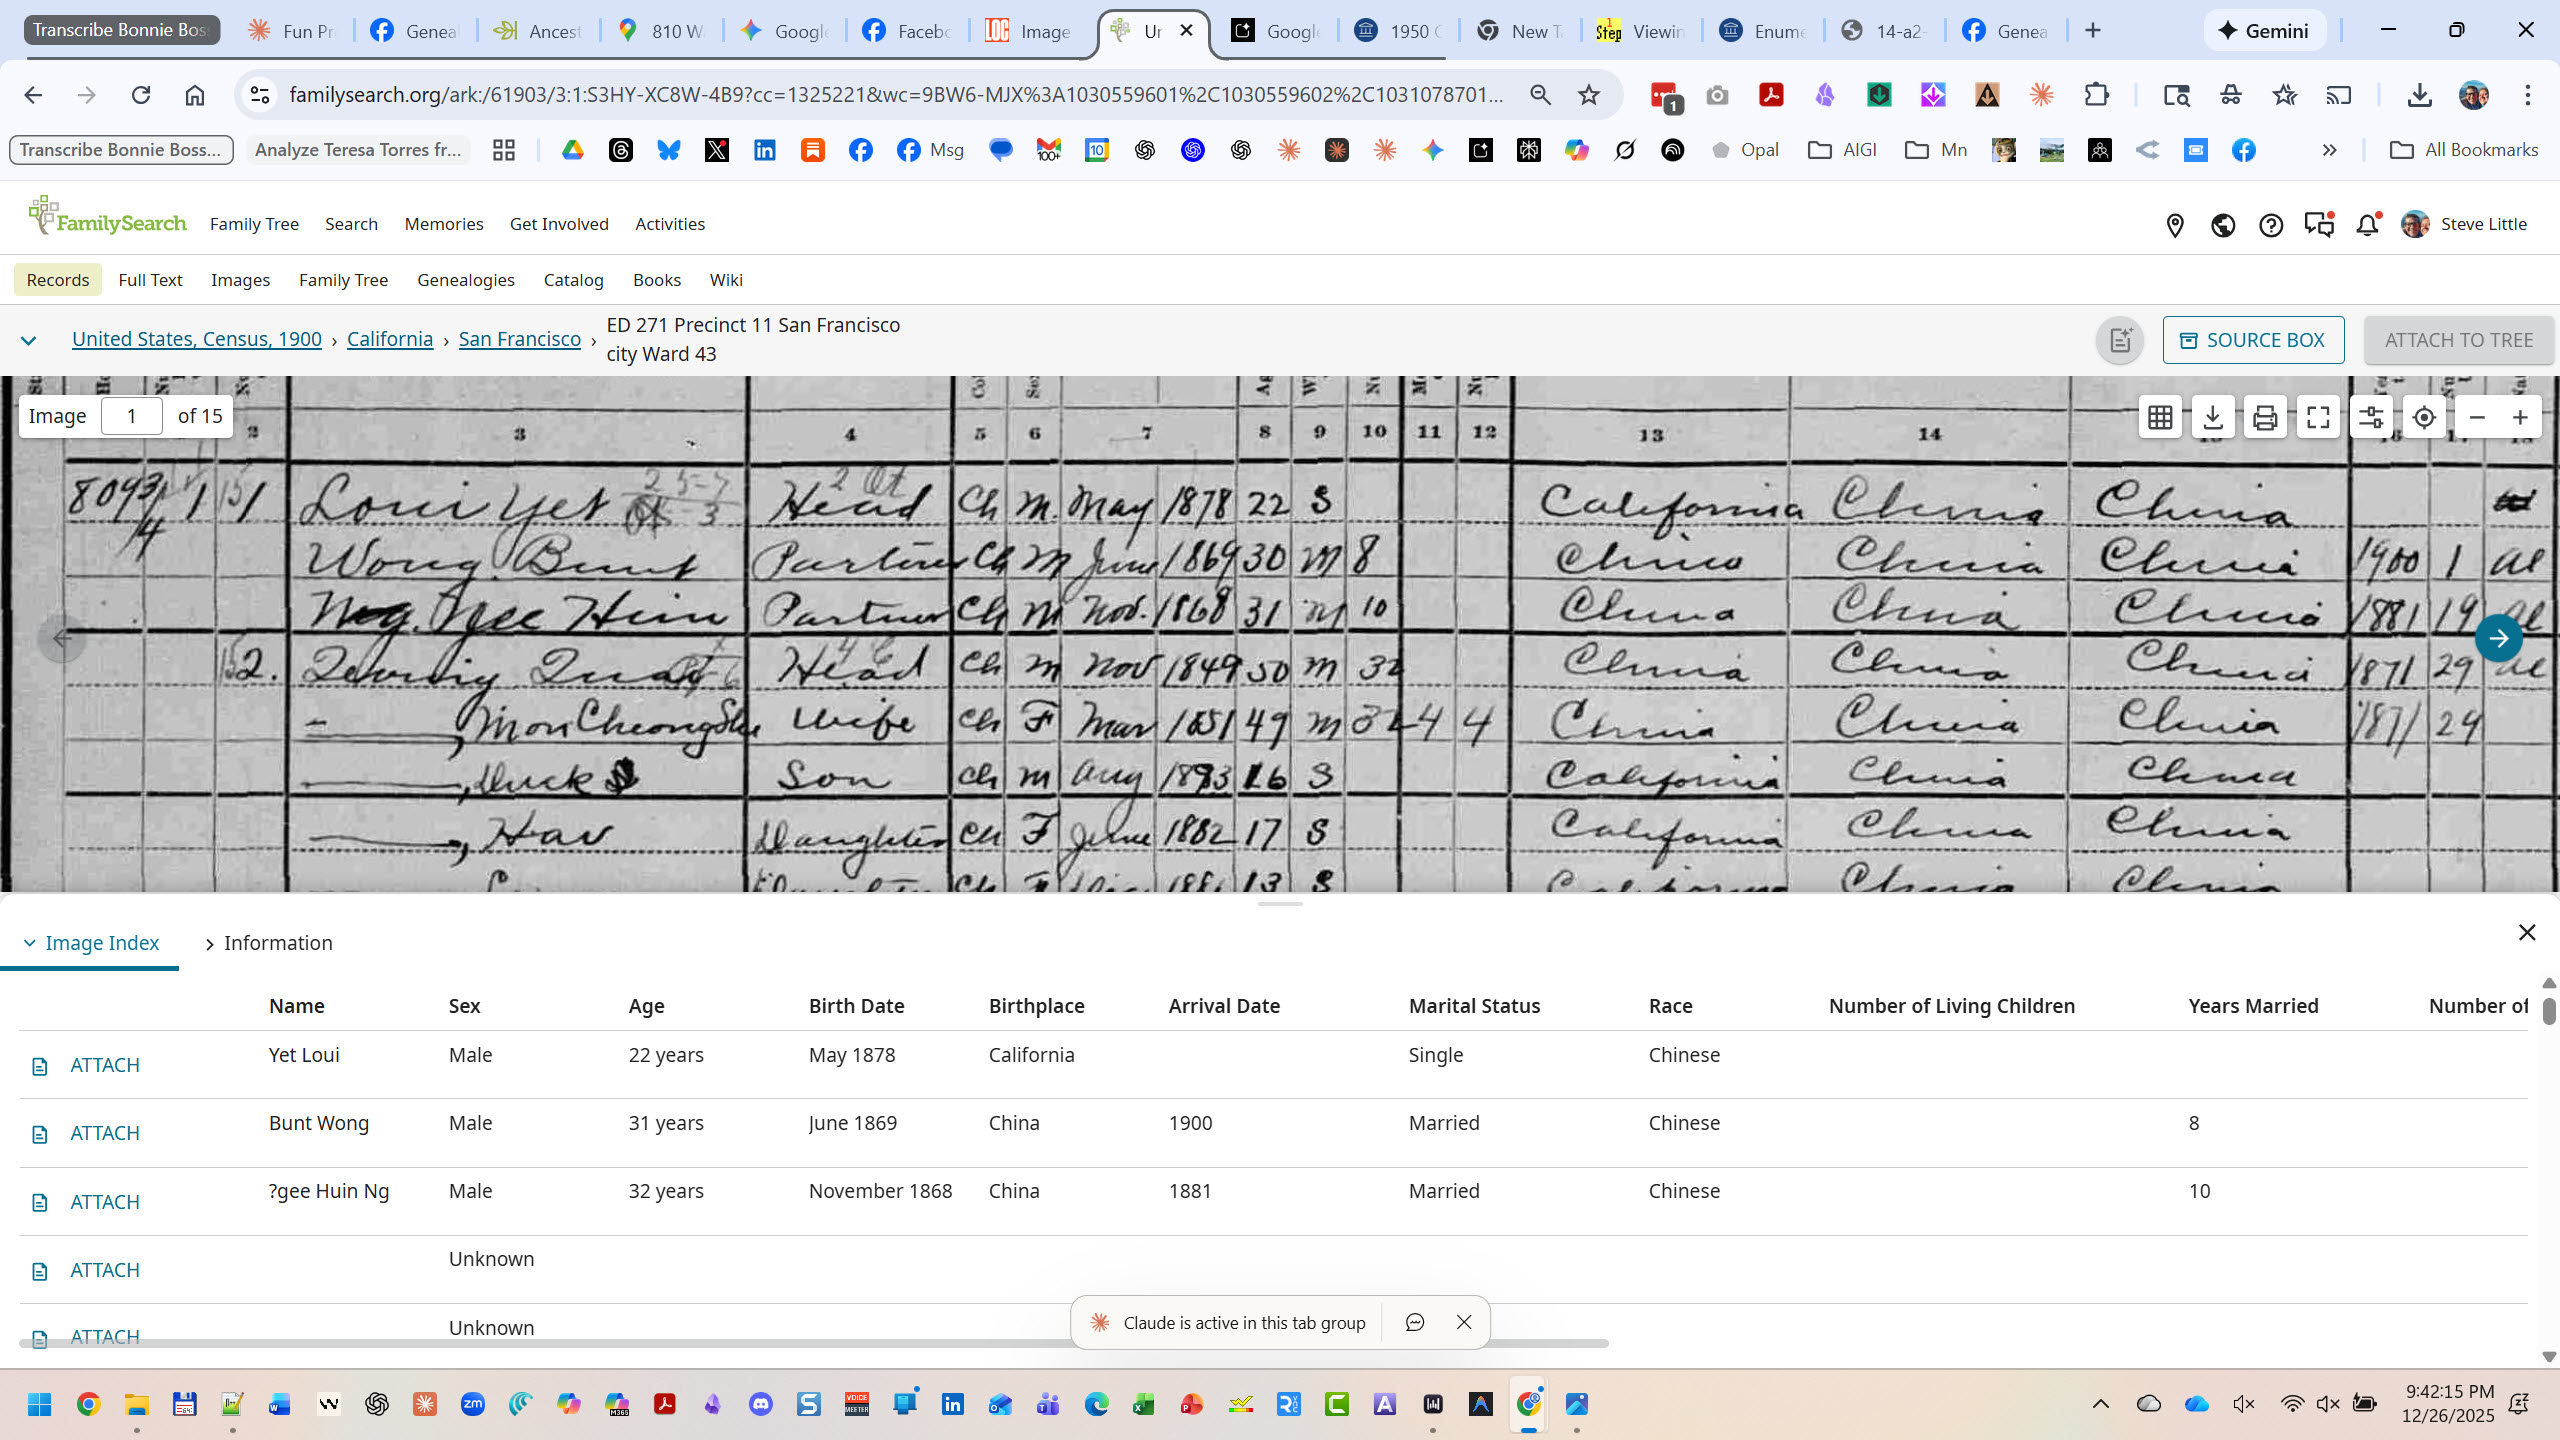 Transcribe Bonnie Bos
Fun Pr
Geneal
Ancest
810 W
Google
Facebo
LOC Image
Un
Googl
1950 C
New T
Step Viewin
Enume
14-a2-
Genea
Gemini
familysearch.org/ark:/61903/3:1:S3HY-XC8W-4B9?cc=1325221&wc=9BW6-MJX%3A1030559601%2C1030559602%2C1031078701...
1
Transcribe Bonnie Boss... Analyze Teresa Torres fr... Msg 100+ 10 Opal AIGI Mn All Bookmarks
FamilySearch Family Tree Search Memories Get Involved Activities Steve Little
Records Full Text Images Family Tree Genealogies Catalog Books Wiki
United States, Census, 1900 › California › San Francisco › ED 271 Precinct 11 San Francisco
city Ward 43
SOURCE BOX ATTACH TO TREE
Image 1 of 15
2 3 4 5 6 7 8 9 10 11 12 13 14
Loui Yet Head Ch M. May 1878 22 S California China China
Wong Bunt Partner Ch M June 1869 30 M 8 China China China 1900 1 Al
Ng. Gee Hein Partner Ch M Nov. 1868 31 M 10 China China China 1881 19 Al
2. Head Ch M Nov 1849 50 M 32 China China China 1871 29 Al
—, Mon Cheong She Wife Ch F Mar 1851 49 M 32 4 4 China China China 1871 29
—, Duck Son Ch M Aug 1883 16 S California China China
—, Hav Daughter Ch F June 1882 17 S California China China
Image Index Information
Name Sex Age Birth Date Birthplace Arrival Date Marital Status Race Number of Living Children Years Married Number of
ATTACH Yet Loui Male 22 years May 1878 California Single Chinese
ATTACH Bunt Wong Male 31 years June 1869 China 1900 Married Chinese 8
ATTACH ?gee Huin Ng Male 32 years November 1868 China 1881 Married Chinese 10
ATTACH Unknown
ATTACH Unknown
Claude is active in this tab group
9:42:15 PM
12/26/2025